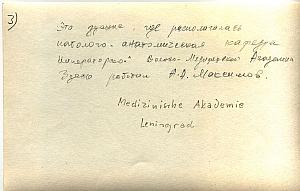 3)
Это здание, где располагалась
патолого-анатомическая кафедра
Императорской Военно-Медицинской Академии
Здесь работал А.А. Максимов.
Medizinische Akademie
Leningrad